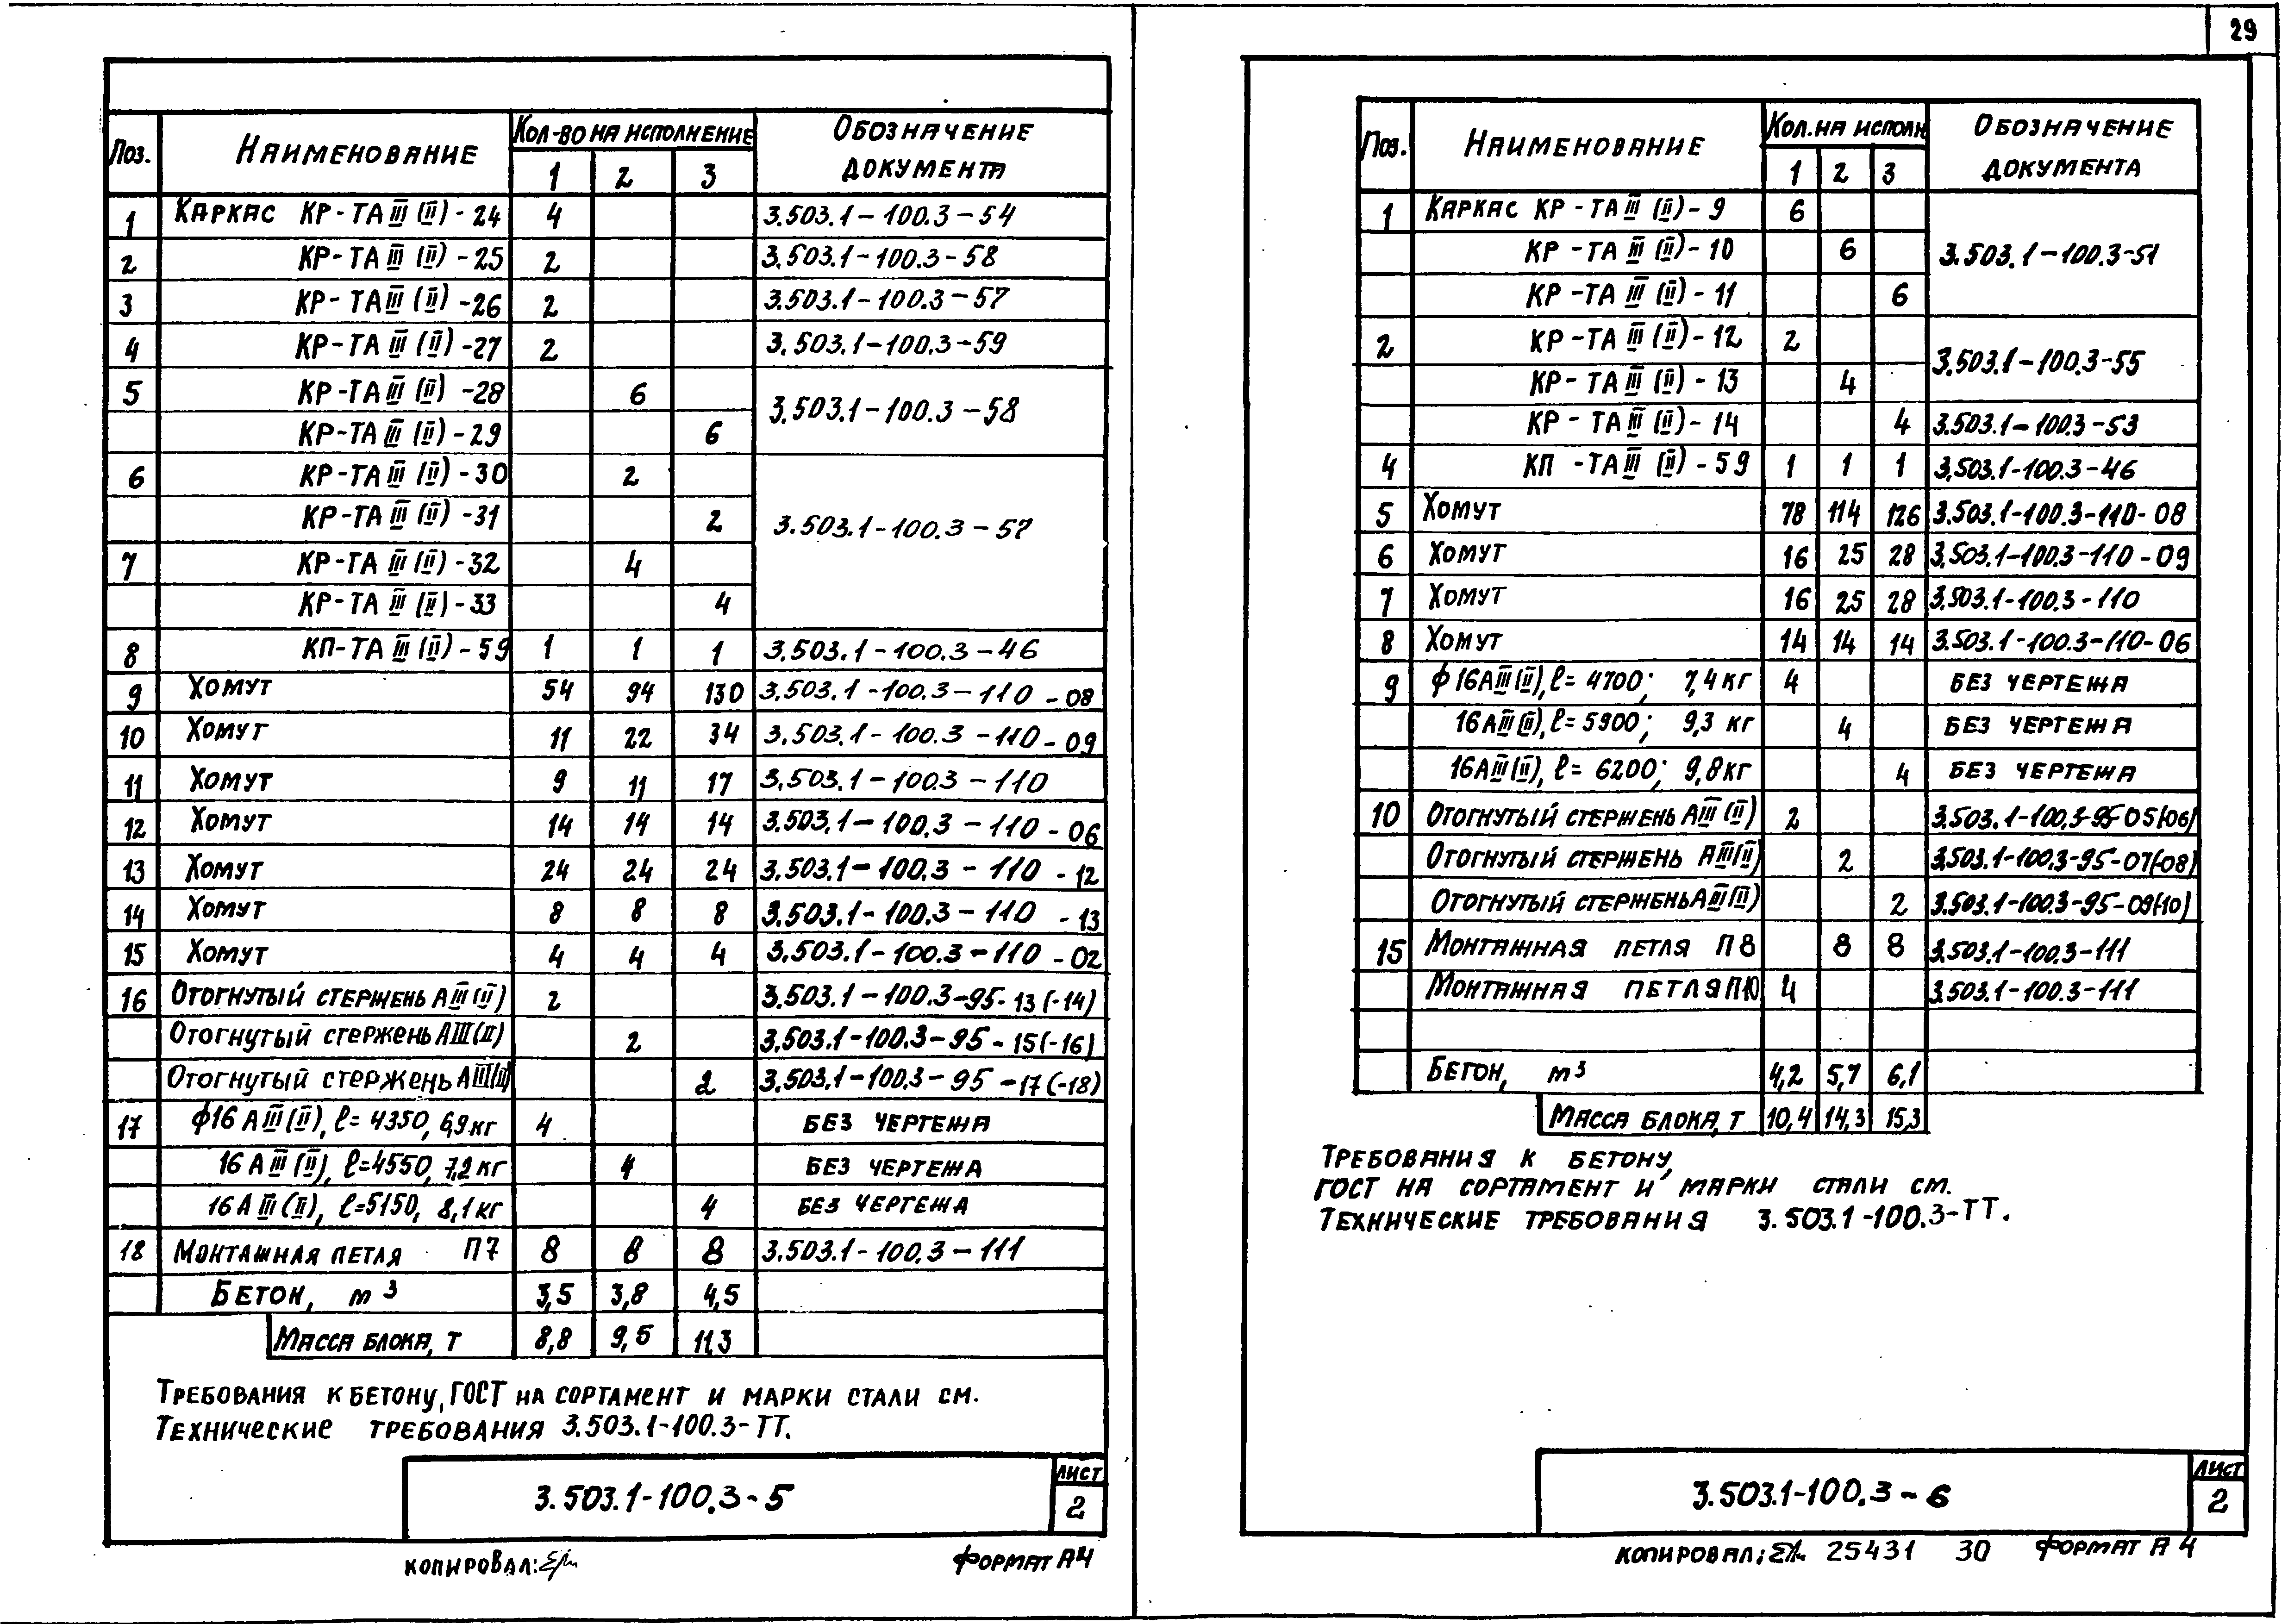 29
Поз. Наименование Кол-во на исполнение Обозначение документа
1 2 3
1 Каркас КР-ТАIII(II)-24 4 3.503.1-100.3-54
2 КР-ТАIII(II)-25 2 3.503.1-100.3-58
3 КР-ТАIII(II)-26 2 3.503.1-100.3-57
4 КР-ТАIII(II)-27 2 3.503.1-100.3-59
5 КР-ТАIII(II)-28 6 3.503.1-100.3-58
КР-ТАIII(II)-29 6
6 КР-ТАIII(II)-30 2
КР-ТАIII(II)-31 2 3.503.1-100.3-57
7 КР-ТАIII(II)-32 4
КР-ТАIII(II)-33 4
8 КП-ТАIII(II)-59 1 1 1 3.503.1-100.3-46
9 Хомут 54 94 130 3.503.1-100.3-110-08
10 Хомут 11 22 34 3.503.1-100.3-110-09
11 Хомут 9 11 17 3.503.1-100.3-110
12 Хомут 14 14 14 3.503.1-100.3-110-06
13 Хомут 24 24 24 3.503.1-100.3-110-12
14 Хомут 8 8 8 3.503.1-100.3-110-13
15 Хомут 4 4 4 3.503.1-100.3-110-02
16 Отогнутый стержень АIII(II) 2 3.503.1-100.3-95-13(-14)
Отогнутый стержень АIII(II) 2 3.503.1-100.3-95-15(-16)
Отогнутый стержень АIII(II) 2 3.503.1-100.3-95-17(-18)
17 ф16АIII(II), ℓ=4350, 6,9кг 4 без чертежа
16АIII(II), ℓ=4550, 7,2кг 4 без чертежа
16АIII(II), ℓ=5150, 8,1кг 4 без чертежа
18 Монтажная петля П7 8 8 8 3.503.1-100.3-111
Бетон, м3 3,5 3,8 4,5
Масса блока, т 8,8 9,5 11,3
Требования к бетону, ГОСТ на сортамент и марки стали см.
Технические требования 3.503.1-100.3-ТТ.
3.503.1-100.3-5
Лист
2
Копировал:
Формат А4
Поз. Наименование Кол. на исполн Обозначение документа
1 2 3
1 Каркас КР-ТАIII(II)-9 6
КР-ТАIII(II)-10 6 3.503.1-100.3-51
КР-ТАIII(II)-11 6
2 КР-ТАIII(II)-12 2 3.503.1-100.3-55
КР-ТАIII(II)-13 4
КР-ТАIII(II)-14 4 3.503.1-100.3-53
4 КП-ТАIII(II)-59 1 1 1 3.503.1-100.3-46
5 Хомут 78 114 126 3.503.1-100.3-110-08
6 Хомут 16 25 28 3.503.1-100.3-110-09
7 Хомут 16 25 28 3.503.1-100.3-110
8 Хомут 14 14 14 3.503.1-100.3-110-06
9 ф16АIII(II), ℓ=4700; 7,4кг 4 без чертежа
16АIII(II), ℓ=5900; 9,3 кг 4 без чертежа
16АIII(II), ℓ=6200; 9,8кг 4 без чертежа
10 Отогнутый стержень АIII(II) 2 3.503.1-100.3-95-05(-06)
Отогнутый стержень АIII(II) 2 3.503.1-100.3-95-07(-08)
Отогнутый стержень АIII(II) 2 3.503.1-100.3-95-09(-10)
15 Монтажная петля П8 8 8 3.503.1-100.3-111
Монтажная петля П10 4 3.503.1-100.3-111
Бетон, м3 4,2 5,7 6,1
Масса блока, т 10,4 14,3 15,3
Требования к бетону,
ГОСТ на сортамент и марки стали см.
Технические требования 3.503.1-100.3-ТТ.
3.503.1-100.3-6
Лист
2
Копировал: 25431 30 Формат А4